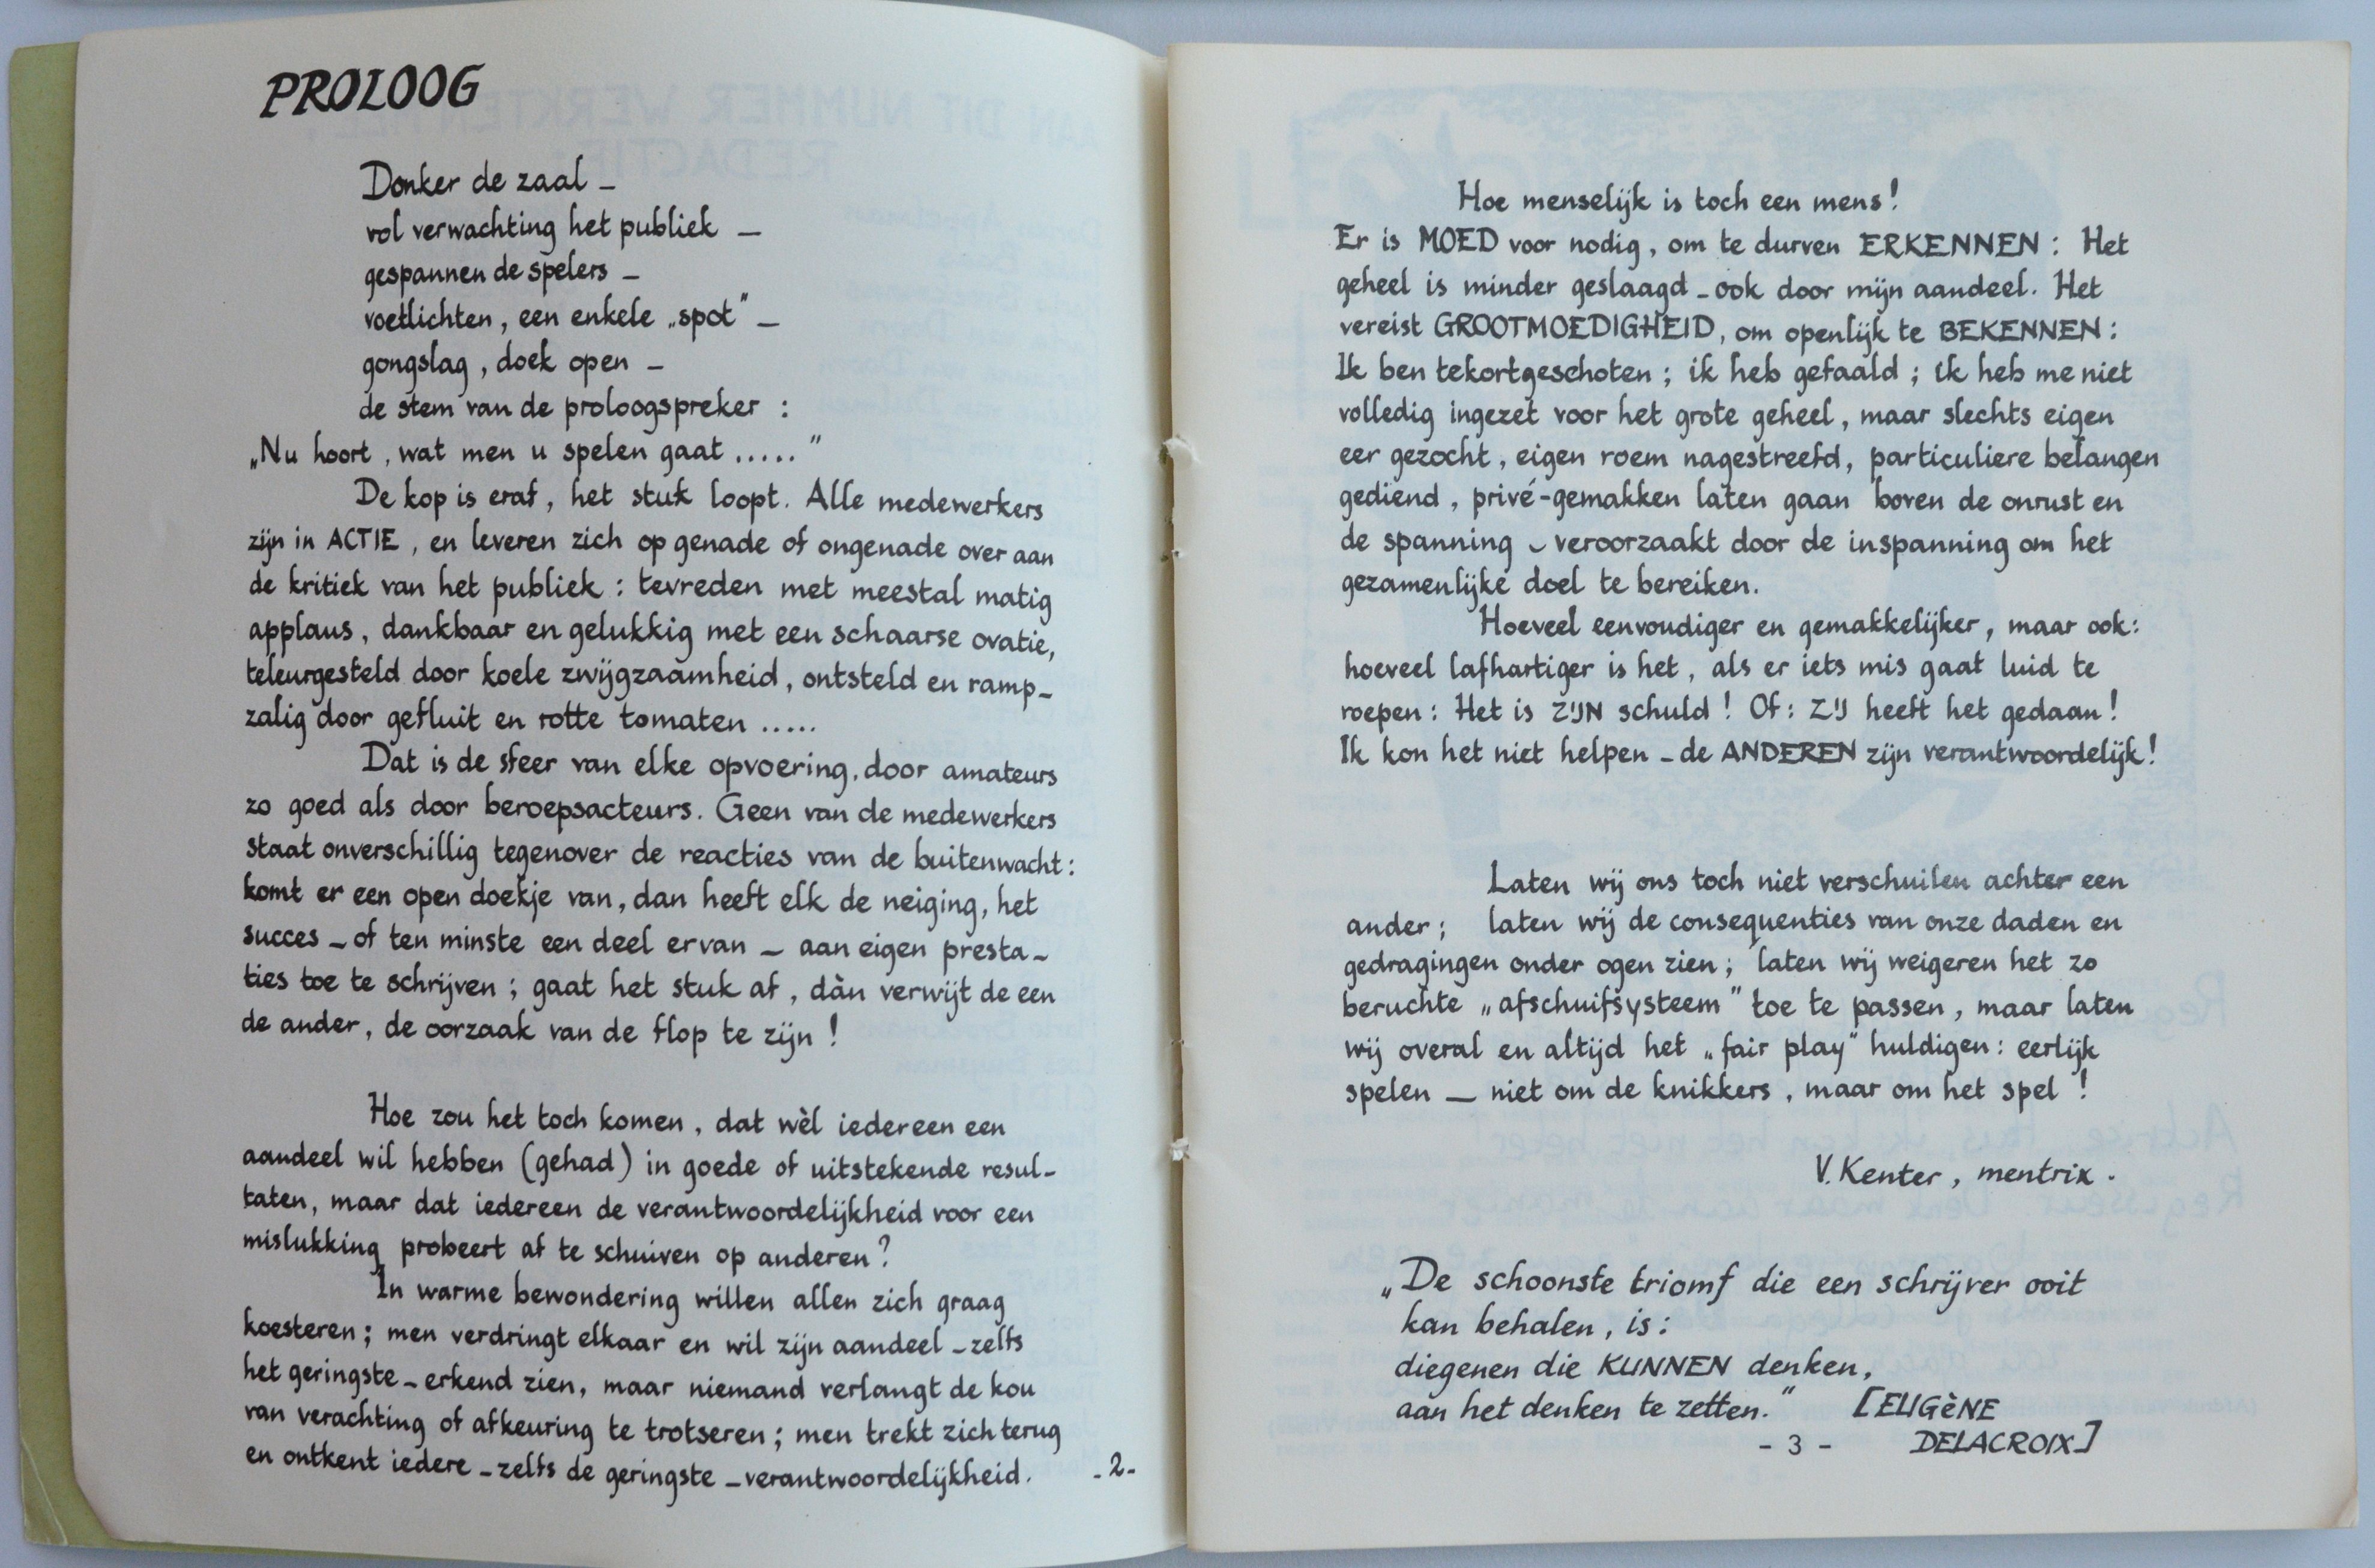 PROLOOG
Donker de zaal –
vol verwachting het publiek —
gespannen de spelers –
voetlichten, een enkele „spot” –
gongslag, doek open –
de stem van de proloogspreker :
„Nu hoort, wat men u spelen gaat .....”
De kop is eraf, het stuk loopt. Alle medewerkers
zijn in ACTIE, en leveren zich op genade of ongenade over aan
de kritiek van het publiek : tevreden met meestal matig
applaus, dankbaar en gelukkig met een schaarse ovatie,
teleurgesteld door koele zwijgzaamheid, ontsteld en ramp-
zalig door gefluit en rotte tomaten .....
Dat is de sfeer van elke opvoering, door amateurs
zo goed als door beroepsacteurs. Geen van de medewerkers
staat onverschillig tegenover de reacties van de buitenwacht :
komt er een open doekje van, dan heeft elk de neiging, het
succes – of ten minste een deel ervan – aan eigen presta-
ties toe te schrijven ; gaat het stuk af, dàn verwijt de een
de ander, de oorzaak van de flop te zijn !
Hoe zou het toch komen, dat wèl iedereen een
aandeel wil hebben (gehad) in goede of uitstekende resul-
taten, maar dat iedereen de verantwoordelijkheid voor een
mislukking probeert af te schuiven op anderen ?
In warme bewondering willen allen zich graag
koesteren ; men verdringt elkaar en wil zijn aandeel – zelfs
het geringste – erkend zien, maar niemand verlangt de kou
van verachting of afkeuring te trotseren ; men trekt zich terug
en ontkent iedere – zelfs de geringste – verantwoordelijkheid.
- 2 -
Hoe menselijk is toch een mens !
Er is MOED voor nodig, om te durven ERKENNEN : Het
geheel is minder geslaagd – ook door mijn aandeel. Het
vereist GROOTMOEDIGHEID, om openlijk te BEKENNEN :
Ik ben tekortgeschoten ; ik heb gefaald ; ik heb me niet
volledig ingezet voor het grote geheel, maar slechts eigen
eer gezocht, eigen roem nagestreefd, particuliere belangen
gediend, privé-gemakken laten gaan boven de onrust en
de spanning – veroorzaakt door de inspanning om het
gezamenlijke doel te bereiken.
Hoeveel eenvoudiger en gemakkelijker, maar ook :
hoeveel lafhartiger is het, als er iets mis gaat luid te
roepen : Het is ZIJN schuld ! Of : ZIJ heeft het gedaan !
Ik kon het niet helpen – de ANDEREN zijn verantwoordelijk !
Laten wij ons toch niet verschuilen achter een
ander ; laten wij de consequenties van onze daden en
gedragingen onder ogen zien ; laten wij weigeren het zo
beruchte „afschuifsysteem” toe te passen, maar laten
wij overal en altijd het „fair play” huldigen : eerlijk
spelen — niet om de knikkers, maar om het spel !
V. Kenter, mentrix.
„De schoonste triomf die een schrijver ooit
kan behalen, is :
diegenen die KUNNEN denken,
aan het denken te zetten.” [EUGèNE
DELACROIX]
- 3 -